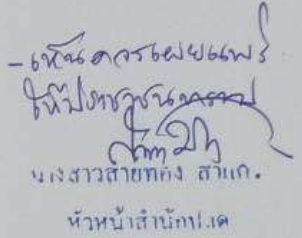 - เห็นควรเผยแพร่
ให้ประชาชนทราบ
นางสาวสายทอง
หัวหน้าสำนักปลัด